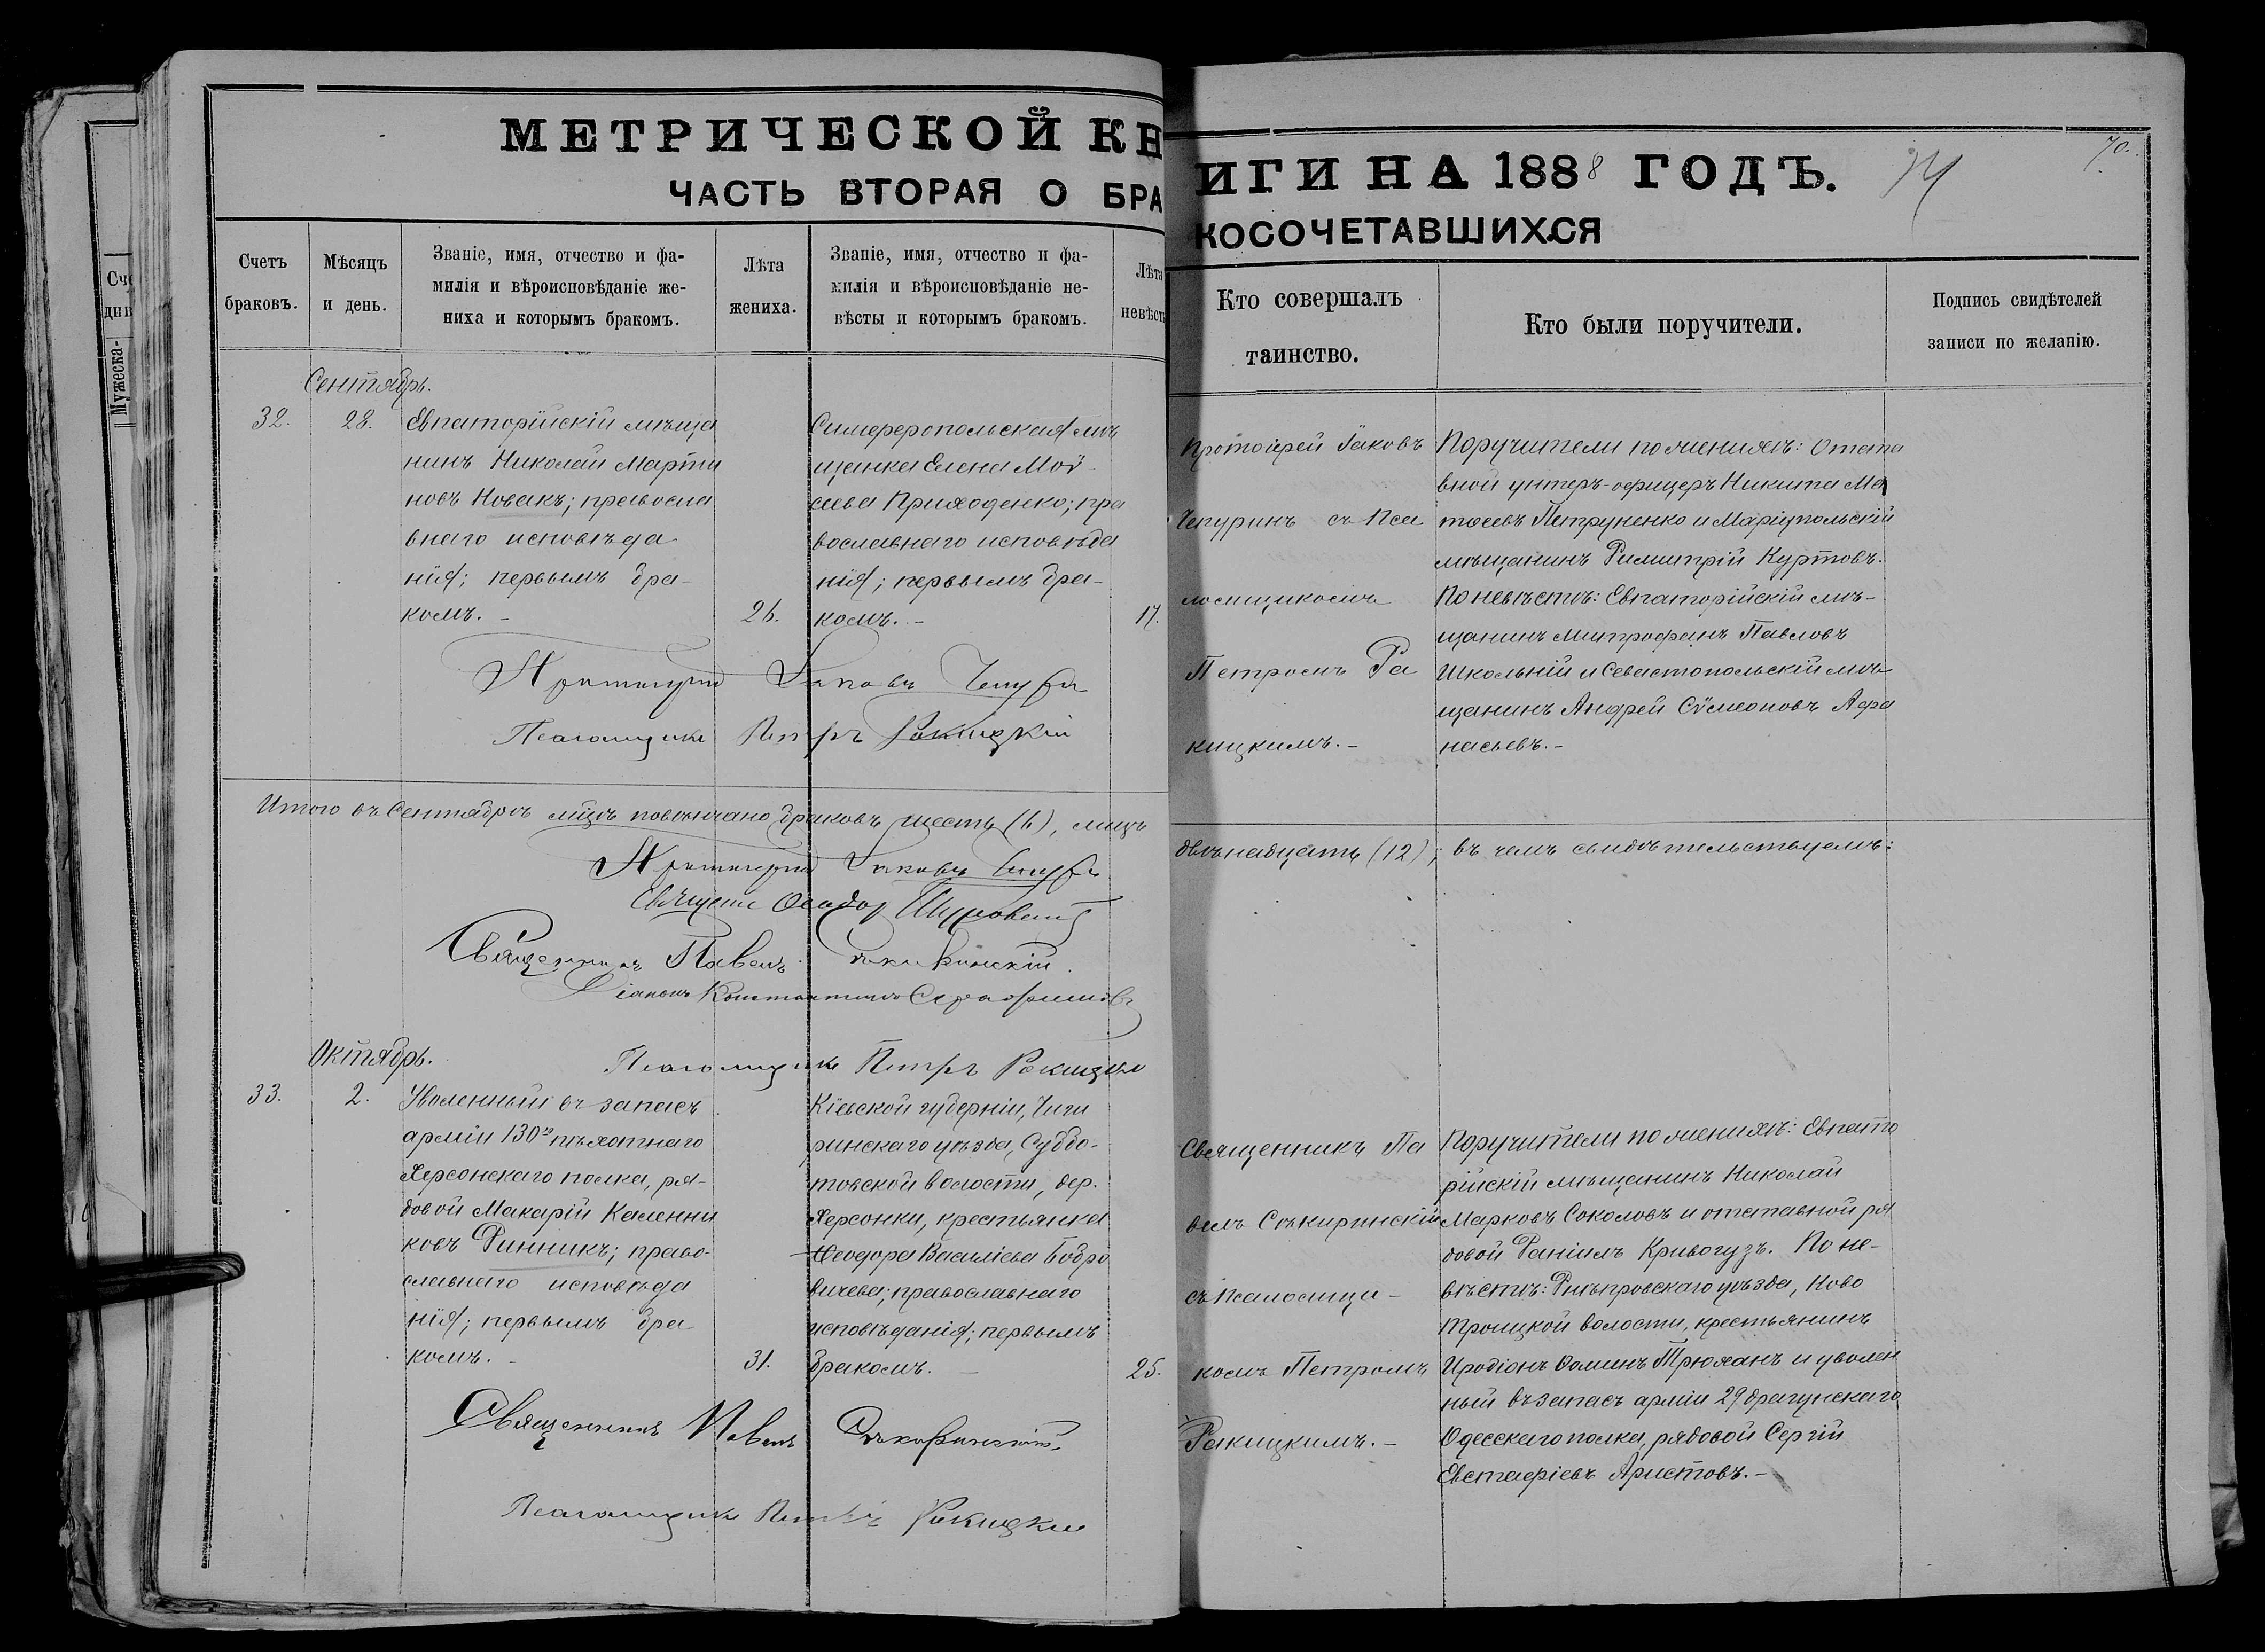 МЕТРИЧЕСКОЙ КНИГИ НА 1888 ГОДЪ.
70.
ЧАСТЬ ВТОРАЯ О БРАКОСОЧЕТАВШИХСЯ
Счетъ
браковъ.
Мѣсяцъ
и день.
Званіе, имя, отчество и фа-
милія и вѣроисповѣданіе же-
ниха и которымъ бракомъ.
Лѣта
жениха.
Званіе, имя, отчество и фа-
милія и вѣроисповѣданіе не-
вѣсты и которымъ бракомъ.
Лѣта
невѣст
Кто совершалъ
таинство.
Кто были поручители.
Подпись свидѣтелей
записи по желанію.
Сче
Мужеска-
Сентябрь.
32.
28.
Евпаторійскій мѣща
нинъ Николай Марти
новъ Новакъ; правосла
внаго исповѣда
нія; первымъ бра-
комъ. -
26.
Симферопольская мѣ
щанка Елена Мої-
сеева Приходенко; пра
вославнаго исповѣда
нія; первымъ бра-
комъ. -
17.
Протоіерей Іаковъ
Чепуринъ съ Пса
ломщикомъ
Петромъ Ра
кицкимъ. -
Поручители по женихѣ: Отста
вной унтеръ-офицеръ Никита Ма
тѳеевъ Петруненко и Маріупольскій
мѣщанинъ Димитрій Куртовъ.
По невѣстѣ: Евпаторійскій мѣ-
щанинъ Митрофанъ Павловъ
Школьній и Севастопольскій мѣ-
щанинъ Андрей Сѵмеоновъ Афа
насьевъ. -
Протоіерей Іаковъ Чепури
Псаломщикъ Петръ Ракицкій
Итого въ Сентябрѣ мцѣ повѣнчано браковъ шесть (6), лицъ
двѣнадцать (12); въ чемъ свидѣтельствуемъ:
Протоіерей Іаковъ Чепури
Священникъ Ѳеодоръ
Священникъ Павелъ Сѣкиринскій.
Діаконъ Константинъ Серафимовъ
Псаломщикъ Петръ Ракицкій
Октябрь.
33.
2.
Уволенный въ запасъ
арміи 130го пѣхотнаго
Херсонскаго полка, ря-
довой Макарій Каленни
ковъ Динникъ; право-
славнаго исповѣда
нія; первымъ бра
комъ. -
31.
Кіевской губерніи, Чиги
ринскаго уѣзда, Суббо-
товской волости, дер.
Херсонки, крестьянка
Ѳеодора Василіева Бобро
вичева; православнаго
исповѣданія; первымъ
бракомъ. -
25.
Священникъ Па
велъ Сѣкиринскій
съ Псаломщи-
комъ Петромъ
Ракицкимъ. -
Поручители по женихѣ: Евпато
рійскій мѣщанинъ Николай
Марковъ Соколовъ и отставной ря
довой Даніилъ Кривогузъ. По не-
вѣстѣ: Днѣпровскаго уѣзда, Ново
троицкой волости, крестьянинъ
Иродіонъ Ѳоминъ Трюханъ и уволен
ный въ запасъ арміи 29 драгунскаго
Одесскаго полка, рядовой Сергій
Евстафіевъ Аристовъ. -
Священникъ Павелъ Сѣкиринскій
Псаломщикъ Петръ Ракицкій